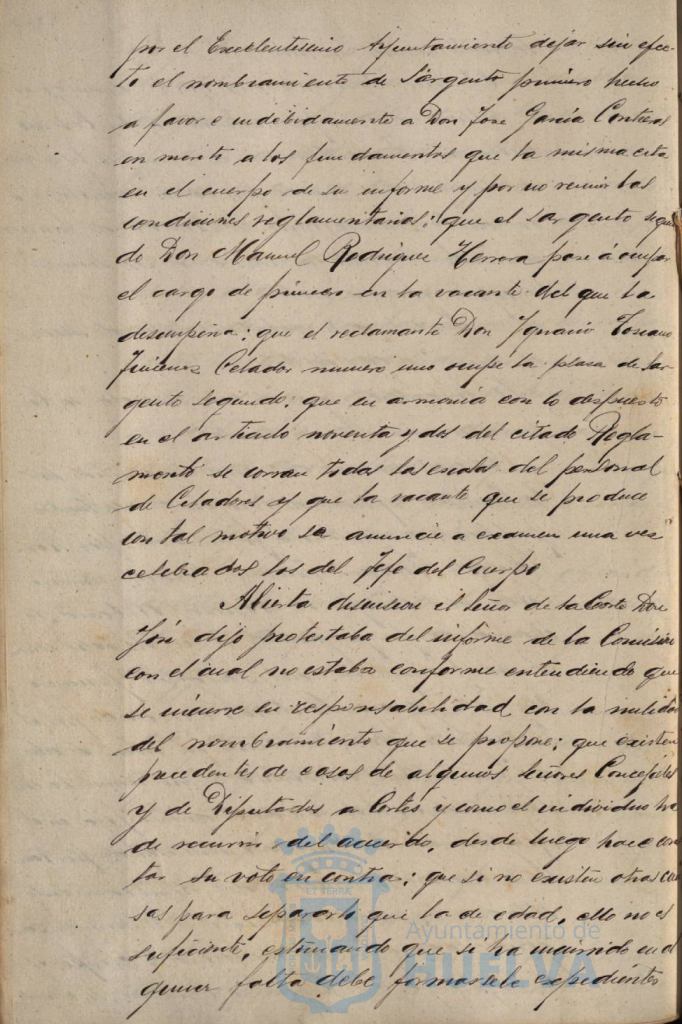 por el Excelentisimo Ayuntamiento dejar sin efec-
to el nombramiento de Sargento primero hecho
a favor e indebidamente a Don Jose Garcia Contreras
en merito a los fundamentos que la misma cita
en el cuerpo de su informe y por no reunir las
condiciones reglamentarias; que el sargento segun
do Don Manuel Rodriguez Herrera pase á ocupar
el cargo de primero en la vacante del que la
desempeña; que el reclamante Don Ignacio Toscano
Jimenez Celador numero uno ocupe la plaza de Sar-
gento segundo; que en armonia con lo dispuesto
en el articulo noventa y dos del citado Regla-
mento se corran todas las escalas del personal
de Celadores y que la vacante que se produce
con tal motivo se anuncie a examen una vez
celebrados los del Jefe del Cuerpo
Abierta discusion el Señor de la Corte Don
José dijo protestaba del informe de la Comisión
con el cual no estaba conforme entendiendo que
se incurre en responsabilidad con la nulidad
del nombramiento que se propone; que existen
precedentes de casos de algunos Señores Concejales
y de Diputados a Cortes y como el individuo ha
de recurrir del acuerdo, desde luego hace cons
tar su voto en contra; que si no existen otras cau
sas para separarlo que la de edad, ello no es
suficiente, estimando que si ha incurrido en al
guna falta debe formarsele expedientes
Ayuntamiento de
HUELVA